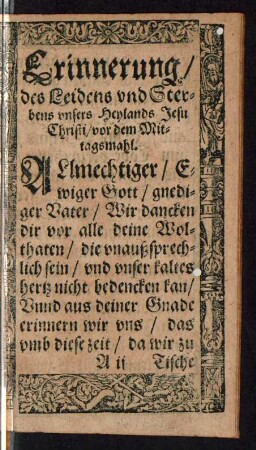 Erinnerung/
des Leidens vnd Ster-
bens vnsers Heylands Jesu
Christi/ vor dem Mit-
tagsmahl.
ALlmechtiger/ E-
wiger Gott/ gnedi-
ger Vater/ Wir dancken
dir vor alle deine Wol-
thaten/ die vnaußsprech-
lich sein/ vnd vnser kaltes
hertz nicht bedencken kan/
Vnnd aus deiner Gnade
erinnern wir vns/ das
vmb diese zeit/ da wir zu
A ij Tische